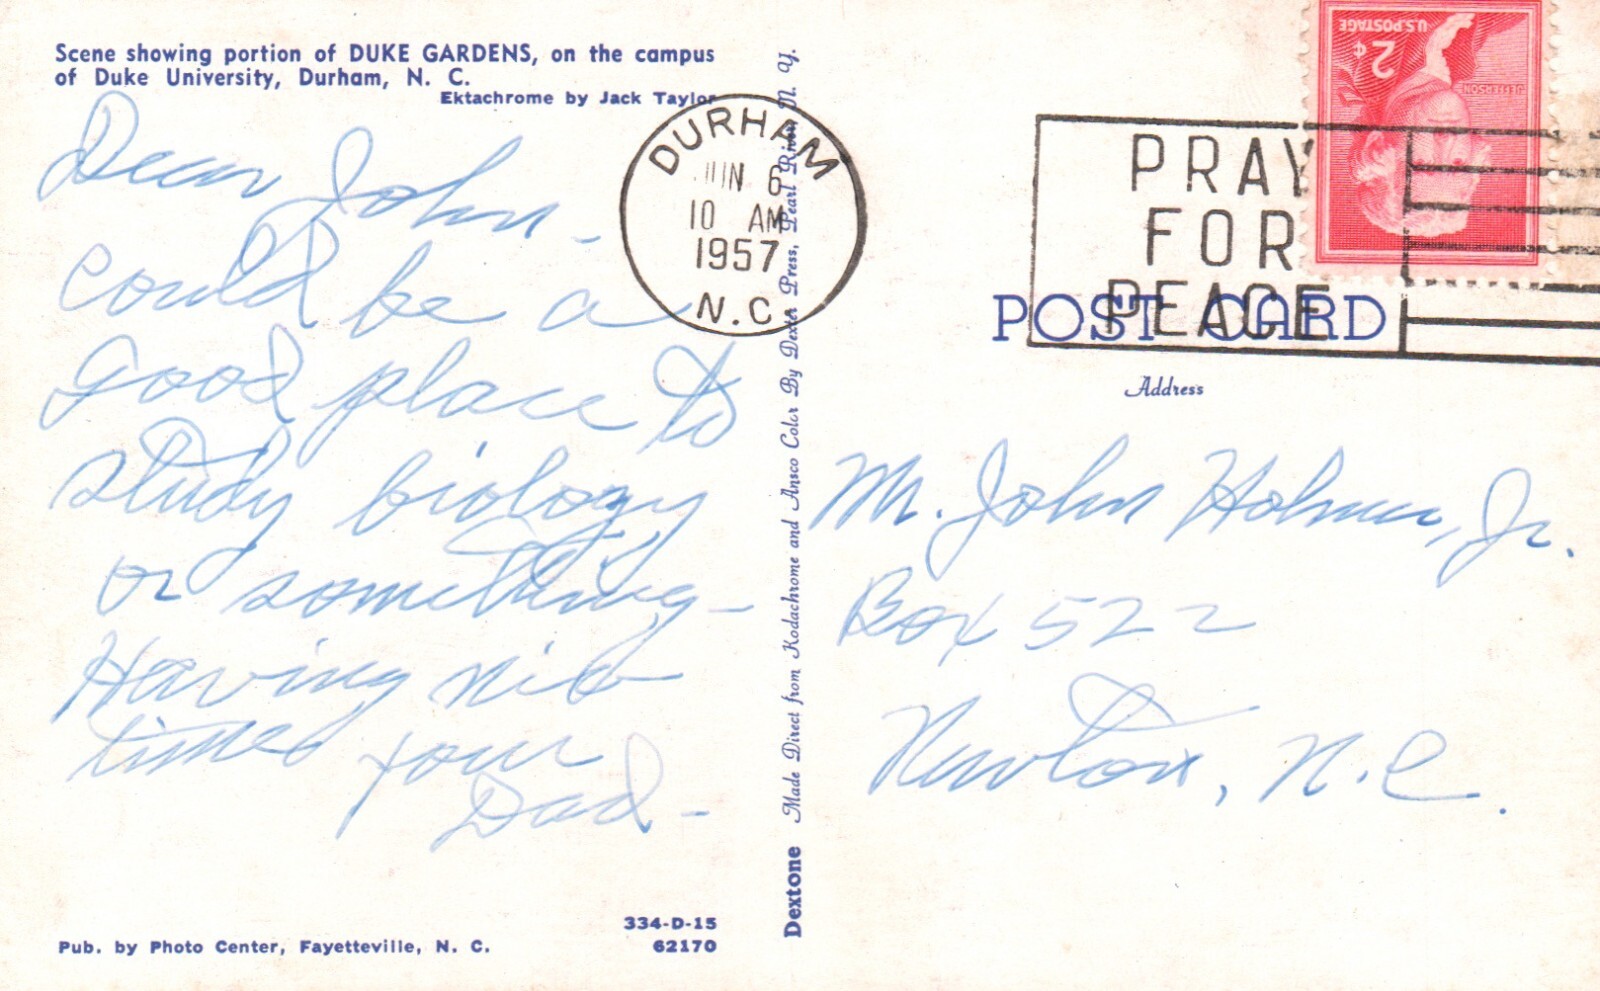 Scene showing portion of DUKE GARDENS, on the campus
of Duke University, Durham, N. C.
Ektachrome by Jack Taylor
Dear John -
Could be a
good place to
study biology
or something -
Having nice
times your
Dad -
334-D-15
62170
Pub. by Photo Center, Fayetteville, N. C.
Dextone Made Direct from Kodachrome and Ansco Color By Dexter Press, Pearl River, N. Y.
DURHAM
JUN 6
10 AM
1957
N.C.
PRAY
FOR
PEACE
U.S. POSTAGE
2¢
JEFFERSON
POST CARD
Address
M. John Holmes, Jr.
Box 522
Newton, N.C.